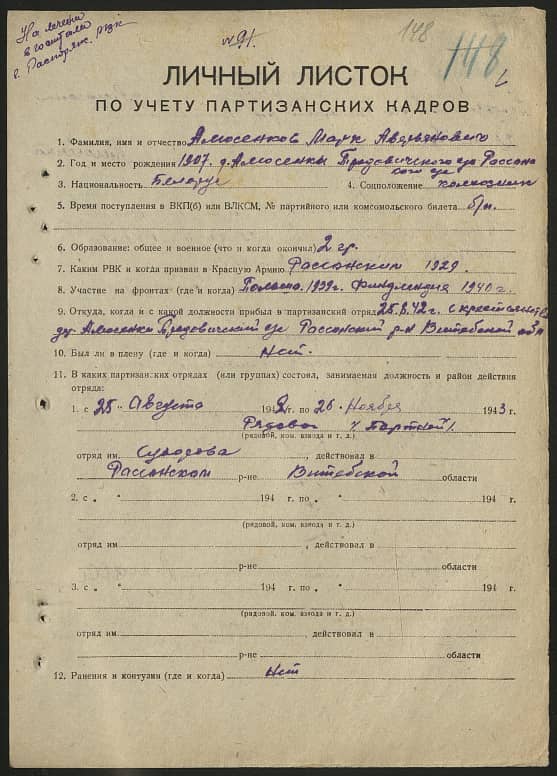 На лечении
в госпитале
г. Распоряж. РВК
№ 91.
148
148
ЛИЧНЫЙ ЛИСТОК
ПО УЧЕТУ ПАРТИЗАНСКИХ КАДРОВ
1. Фамилия, имя и отчество Амосенков Марк Авдеянович
2. Год и место рождения 1907. д. Амосенки Продовичского с/с Россон
ского
3. Национальность Беларус 4. Соцположение колхозник
5. Время поступления в ВКП(б) или ВЛКСМ, № партийного или комсомольского билета б/п.
6. Образование: общее и военное (что и когда окончил) 2 гр.
7. Каким РВК и когда призван в Красную Армию Рассонским 1929.
8. Участие на фронтах (где и когда) Польша. 1939г. Финляндия 1940 г.
9. Откуда, когда и с какой должности прибыл в партизанский отряд 25.8.42г. с крестьянства
д. Амосенки Продовичский с/с Россонский р-н Витебской обл
10. Был ли в плену (где и когда) Нет.
11. В каких партизанских отрядах (или группах) состоял, занимаемая должность и район действия
отряда:
1. с 25 " Августа 1942 г. по 26 " Ноября 1943 г.
Рядовой
(рядовой, ком. взвода и т. д.)
отряд им. Суворова , действовал в
Россонском р-не Витебской области
2. с „ " 194 г. по „ " 194 г.
(рядовой, ком. взвода и т. д.)
отряд им. , действовал в
р-не области
3. с „ " 194 г. по „ " 194 г.
(рядовой, ком. взвода и т. д.)
отряд им. , действовал в
р-не области
12. Ранения и контузии (где и когда) Нет